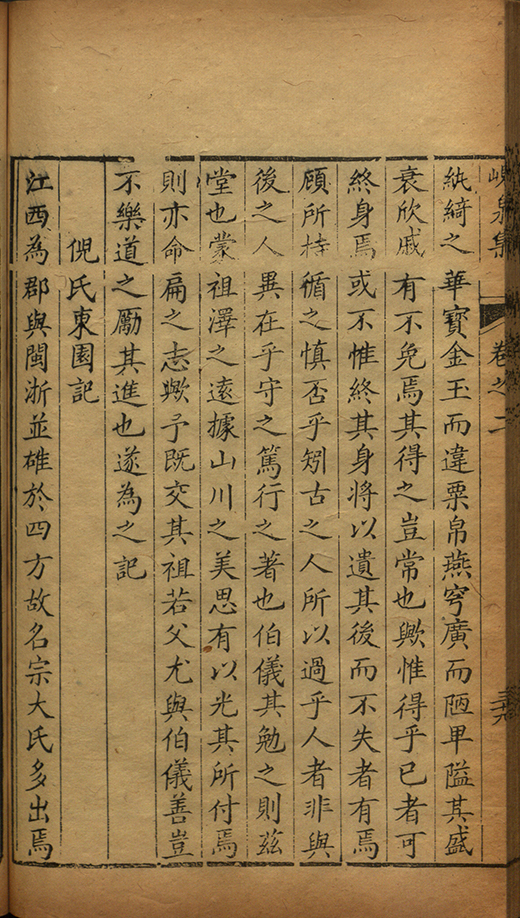 峴泉集 卷之二 三六
紈綺之華寶金玉而違粟帛燕穹廣而陋卑隘其盛
衰欣戚有不免焉其得之豈常也歟惟得乎已者可
終身焉或不惟終其身將以遺其後而不失者有焉
顧所持循之慎否乎矧古之人所以過乎人者非與
後之人異在乎守之篤行之著也伯儀其勉之則茲
堂也蒙祖澤之遠據山川之美思有以光其所付焉
則亦命扁之志歟予既交其祖若父尤與伯儀善豈
不樂道之勵其進也遂為之記
倪氏東園記
江西為郡與閩浙並雄於四方故名宗大氏多出焉